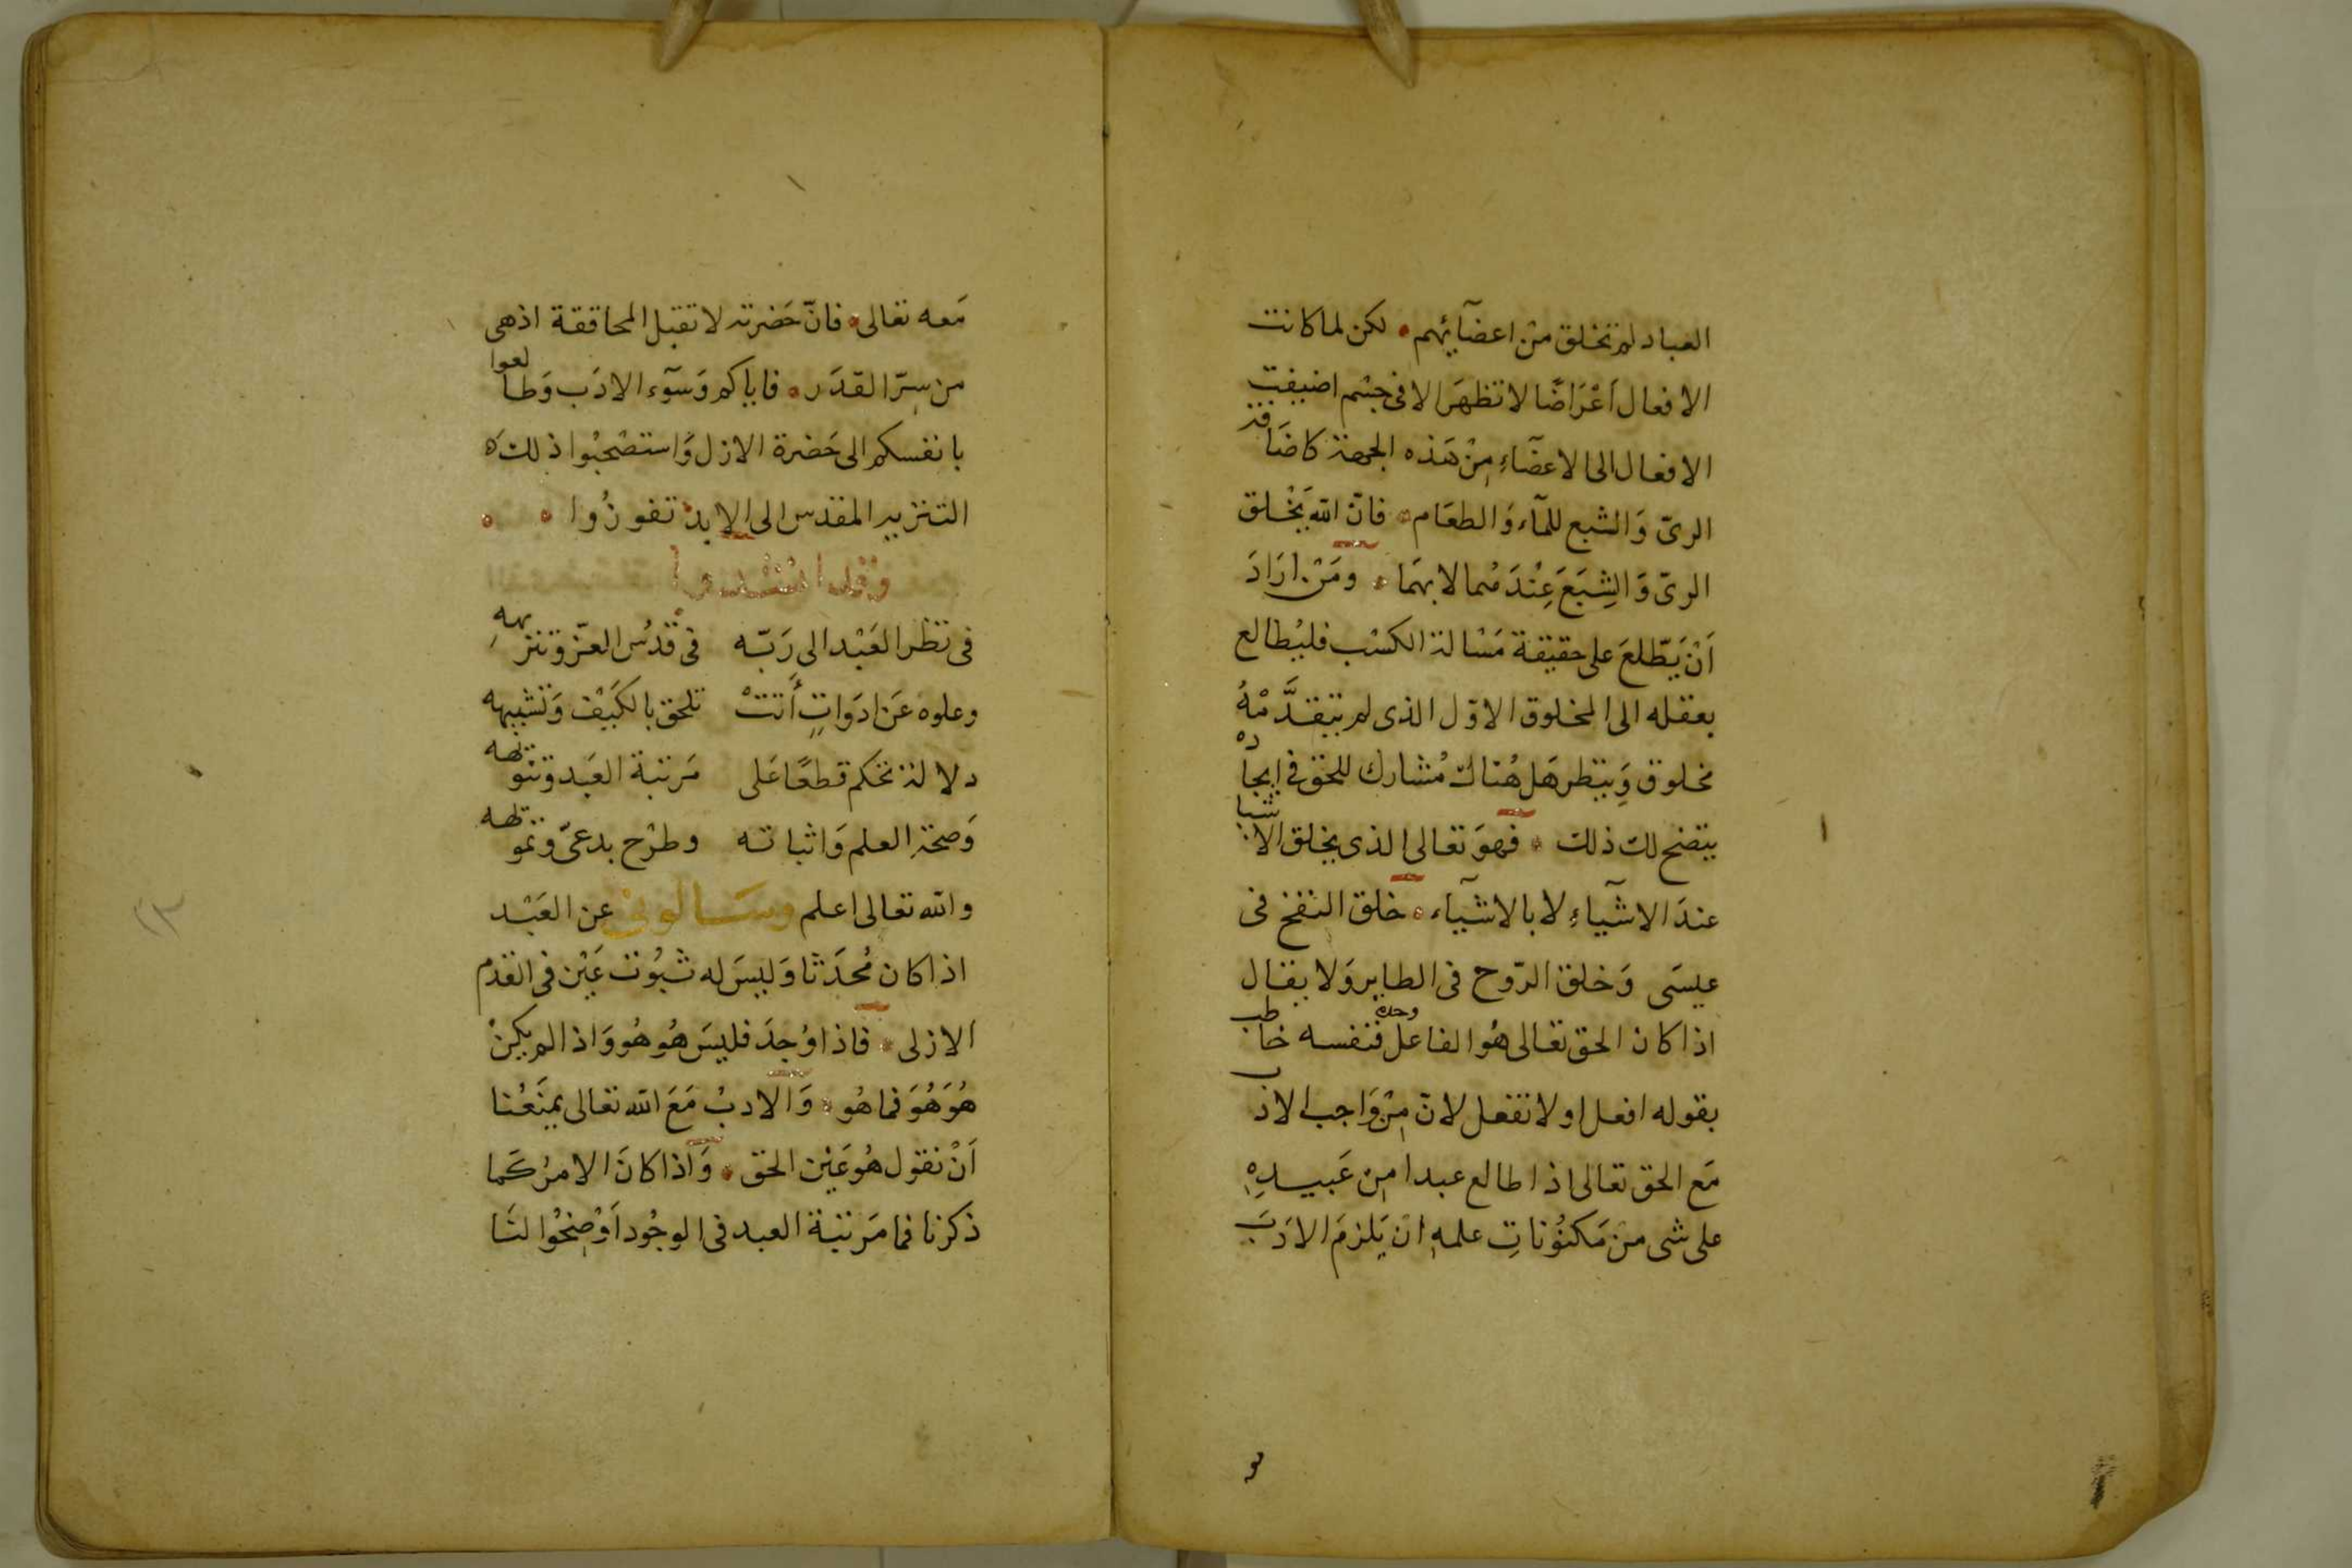 العباد لم تخلق من اعضآئهم لكن لما كانت
الافعال اَعْرَاضًا لا تظهَر الا فى جسْم اضيفت
الافعال الى الاعضَآءِ مِنْ هَذه الجهة كاضَافة
الرىّ وَالشبع للمآء وَالطعَام فانّ الله يَخْلق
الرىّ وَالشِبَعَ عِنْدَهُما لا بهَما ومَنْ ارَادَ
اَنْ يَطّلعَ على حقيقة مَسْالة الكسْب فليُطالع
بعقله الى المخلوق الاوّل الذى لم يتقدَّمْهُ
مخلوق وَينظر هَل هُناك مُشارك للحق فى ايجاده
يتضح لك ذلك فهوَ تعالى الذى يخلق الاشيا
عندَ الاشيآءِ لا بالاشيآء خلق النفخ فى
عيسَى وَخلق الرّوح فى الطاير وَلا يقال
اذا كان الحق تعالى هُو الفاعل وحده فنفسه خاطب
بقوله افعل او لا تفعل لانّ مِنْ وَاجب الادب
مَع الحق تعالى اذا طالع عبدا مِن عَبيدِهِ
على شى منْ مَكنُوناتِ علمهِ انْ يَلزمَ الادَبَ
مَعه تعالى فانّ حَضرته لا تقبل المحاققة اذ هى
من سِرّ القدَر فاياكم وَسوٓء الادَب وَطالعوا
بانفسكم الى حَضرة الازل وَاستصْحبُوا ذلك
التنزيه المقدس الى الابد تفوزُوا
وقد انشدوا
فى نظر العَبْد الى رَبّه فى قدُس العزّ وتنزيههِ
وعلوه عَن ادَوَاتٍ أَتتْ تلحق بالكَيْف وَتشبيهه
دلالة تحكم قطعًا عَلى مَرتبة العَبد وتنويهه
وَصحة العلم وَاثباته وطرْح بدعىّ وتمويهه
والله تعالى اعلم وسَالونى عن العَبْد
اذا كان مُحدَثا وَليسَ له ثبُوت عَيْن فى القدم
الازلى فاذا اوُجدَ فليسَ هُو هُو وَاذا لم يكنْ
هُوَ هُوَ فما هُو وَالادبُ مَعَ الله تعالى يمنَعُنا
اَنْ نقول هُو عَيْن الحق وَاذا كانَ الامرُ كَما
ذكرنا فما مَرتبَة العبد فى الوجُود اَوْضِحُوا لنَا